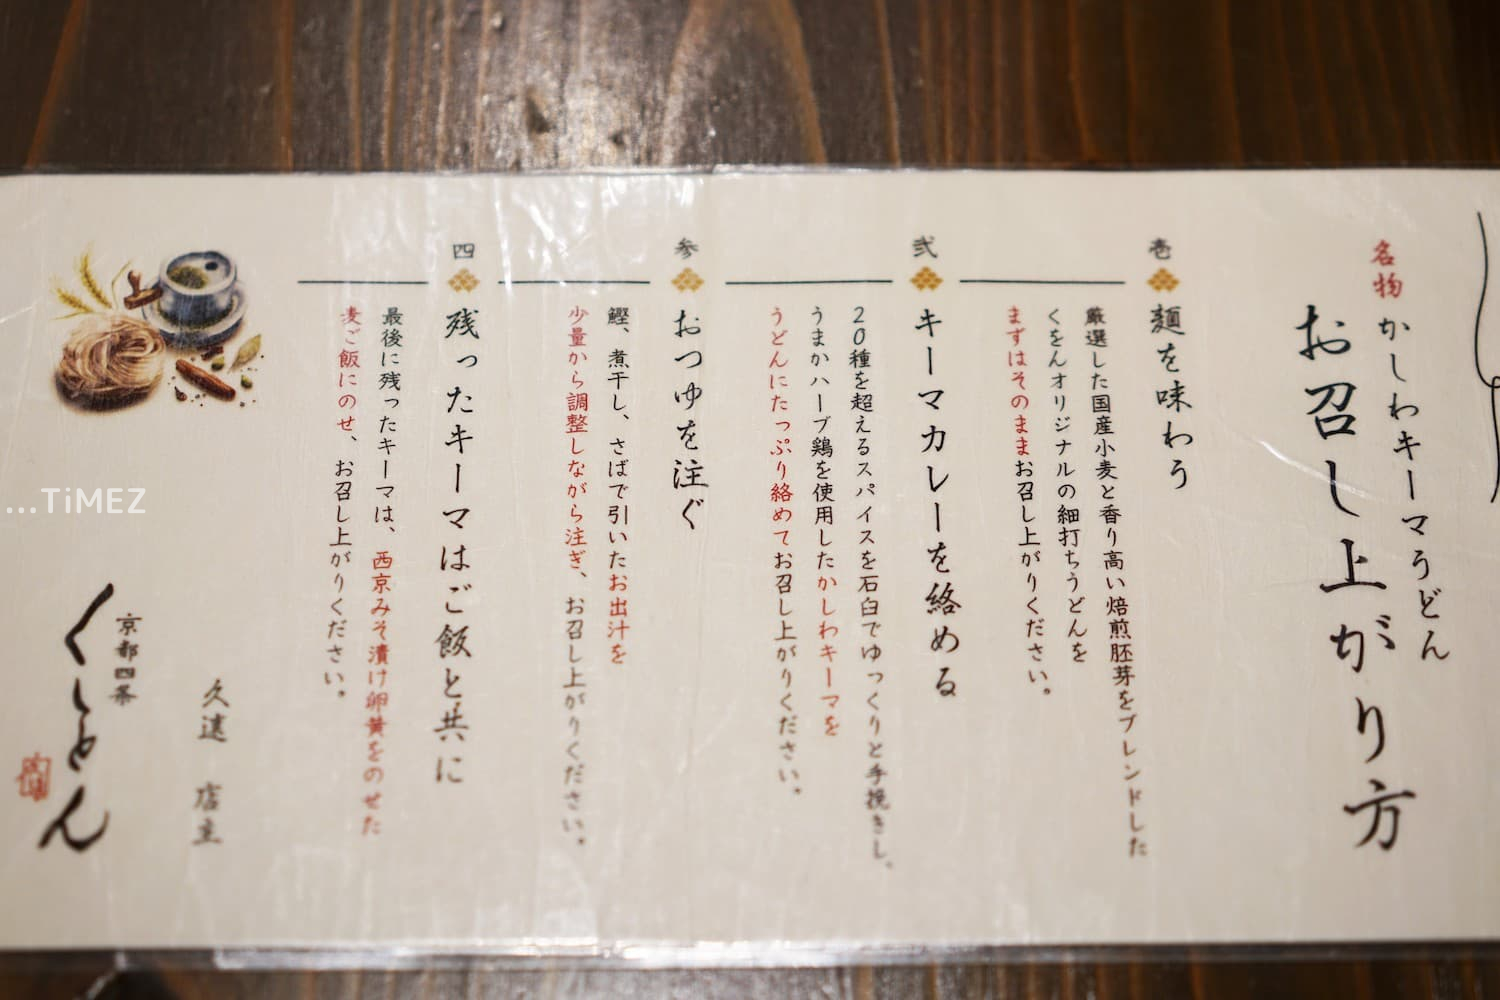 名物
かしわキーマうどん
お召し上がり方
壱
麺を味わう
厳選した国産小麦と香り高い焙煎胚芽をブレンドした
くをんオリジナルの細打ちうどんを
まずはそのままお召し上がりください。
弐
キーマカレーを絡める
20種を超えるスパイスを石臼でゆっくりと手挽きし、
うまかハーブ鶏を使用したかしわキーマを
うどんにたっぷり絡めてお召し上がりください。
参
おつゆを注ぐ
鰹、煮干し、さばで引いたお出汁を
少量から調整しながら注ぎ、お召し上がりください。
四
残ったキーマはご飯と共に
最後に残ったキーマは、西京みそ漬け卵黄をのせた
麦ご飯にのせ、お召し上がりください。
久遠 店主
京都四条
くをん
...TiMEZ